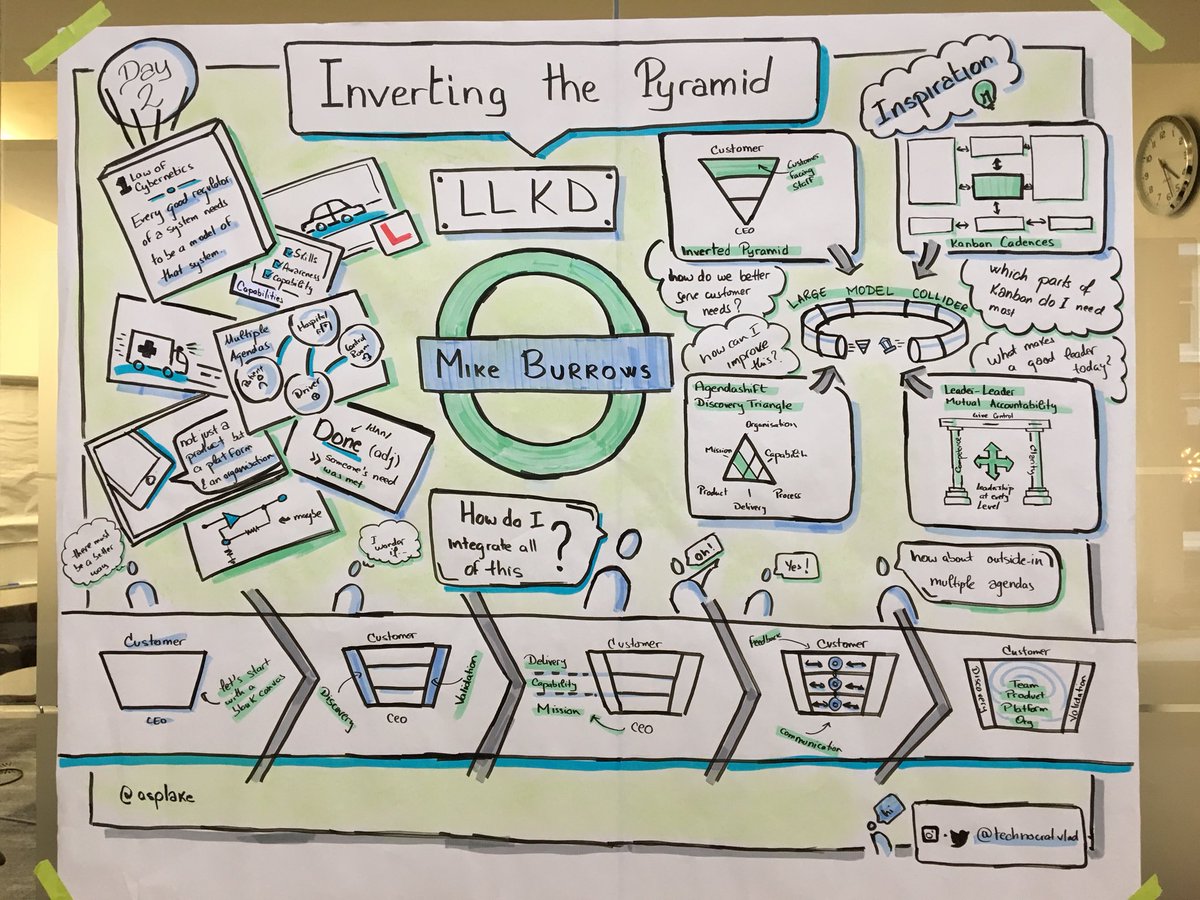 Day
2
Inverting the Pyramid
Inspiration
LLKD
MIKE BURROWS
1 Law of
Cybernetics
Every good regulator
of a system needs
to be a model of
that system
L
Skills
Awareness
Capability
Capabilities
Multiple
Agendas
Hospital
Control
Room
Patient
Driver
not just a
product but
a platform
& an organisation
Done (adj)
someone's need
was met
maybe
Customer
Customer
facing
Staff
CEO
Inverted Pyramid
Kanban Cadences
how do we better
serve customer
needs?
how can I
improve
this?
LARGE MODEL COLLIDER
which parts of
Kanban do I need
most
What makes
a good leader
today?
Agendashift
Discovery Triangle
Organisation
Mission
Capability
Product
Process
Delivery
Leader-Leader
Mutual Accountability
Give Control
Competence
Clarity
Leadership
at every
Level
there must
be a better
way
I
wonder
if...
How do I
integrate all
of this
?
Oh!
Yes!
how about outside-in
multiple agendas
Customer
CEO
let's start
with a
blank canvas
Customer
Discovery
Validation
CEO
Customer
Delivery
Capability
Mission
CEO
Feedback
Customer
communication
Customer
Discovery
Team
Product
Platform
Org
Validation
@asplake
hi
@technocratvlad